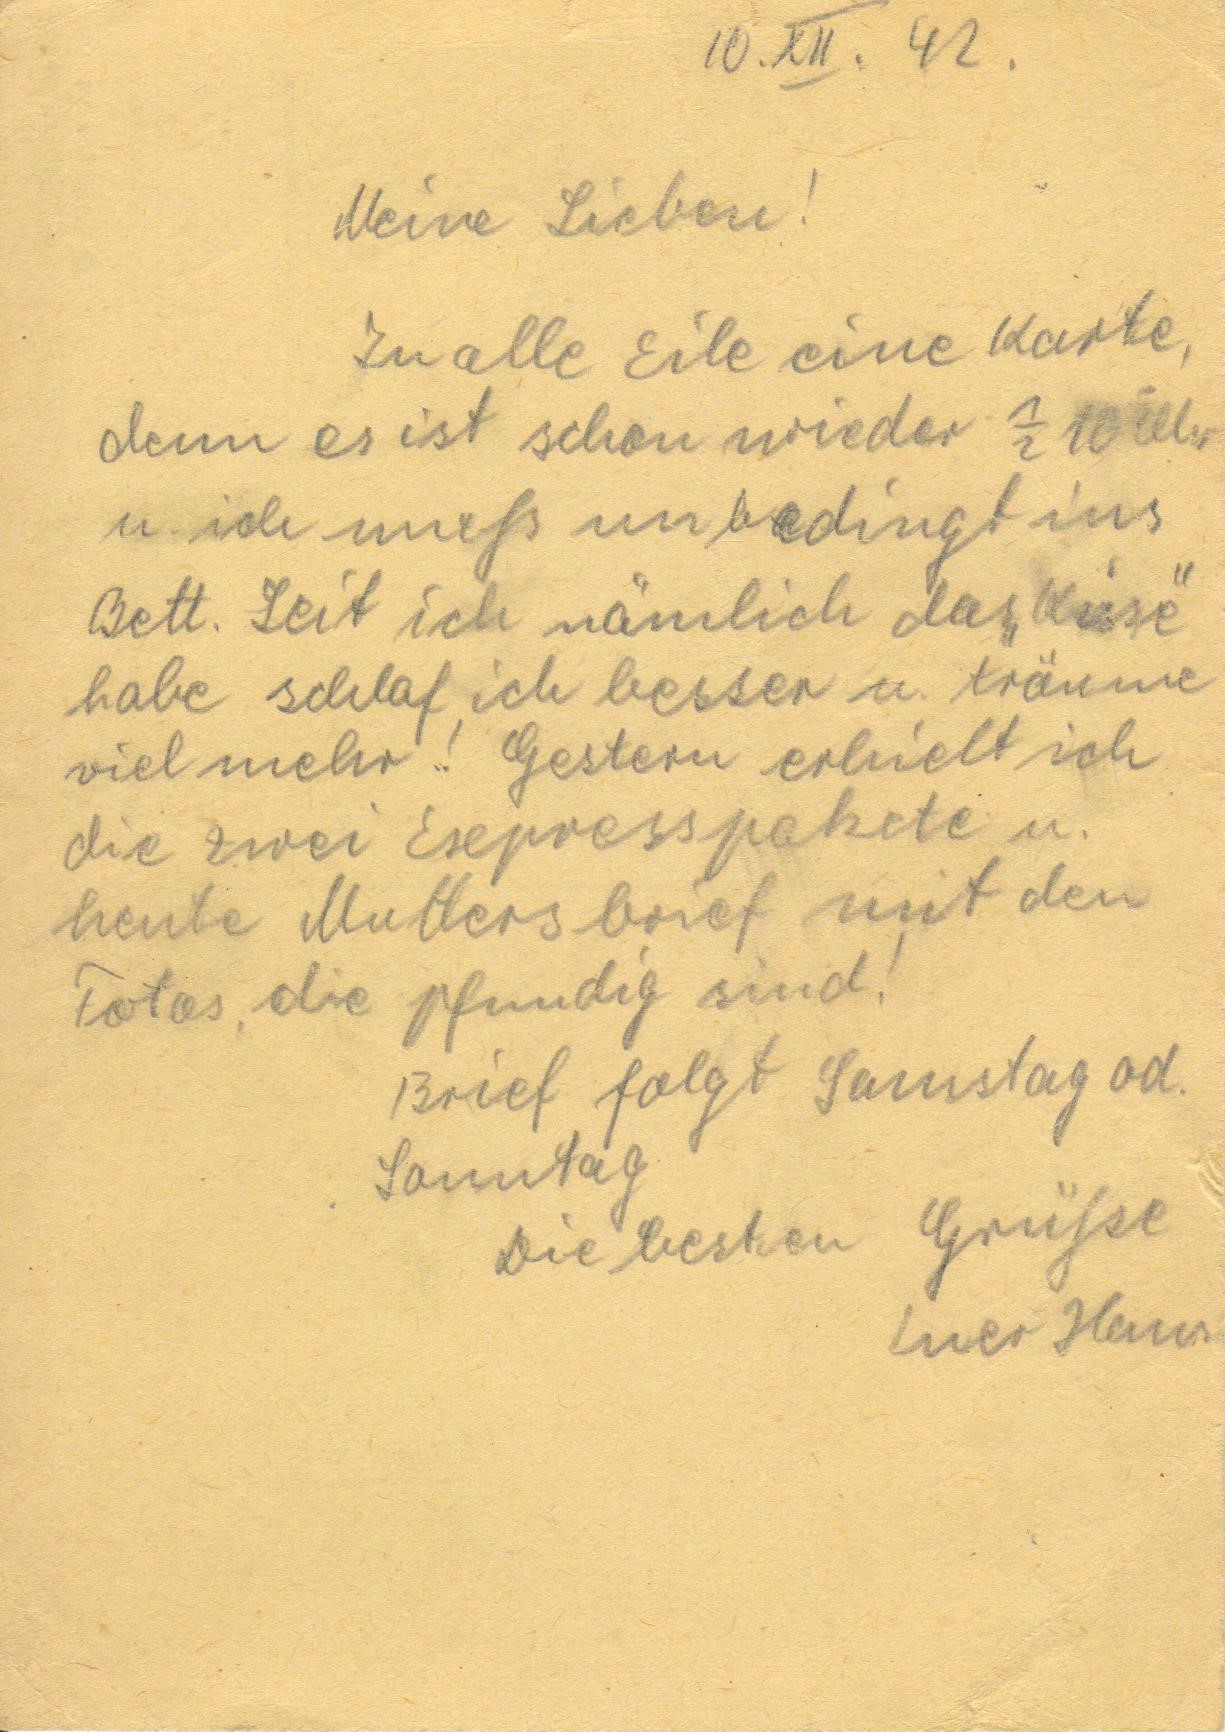 10. XII. 42.
Meine Lieben!
In alle Eile eine Karte,
denn es ist schon wieder ½ 10 Uhr
u. ich muß unbedingt ins
Bett. Seit ich nämlich das
habe schlaf ich besser u. träume
viel mehr! Gestern erhielt ich
die zwei Expresspakete u.
heute Mutters brief mit den
Fotos, die pfundig sind!
Brief folgt Samstag od.
Sonntag
Die besten Grüße
Euer Hans